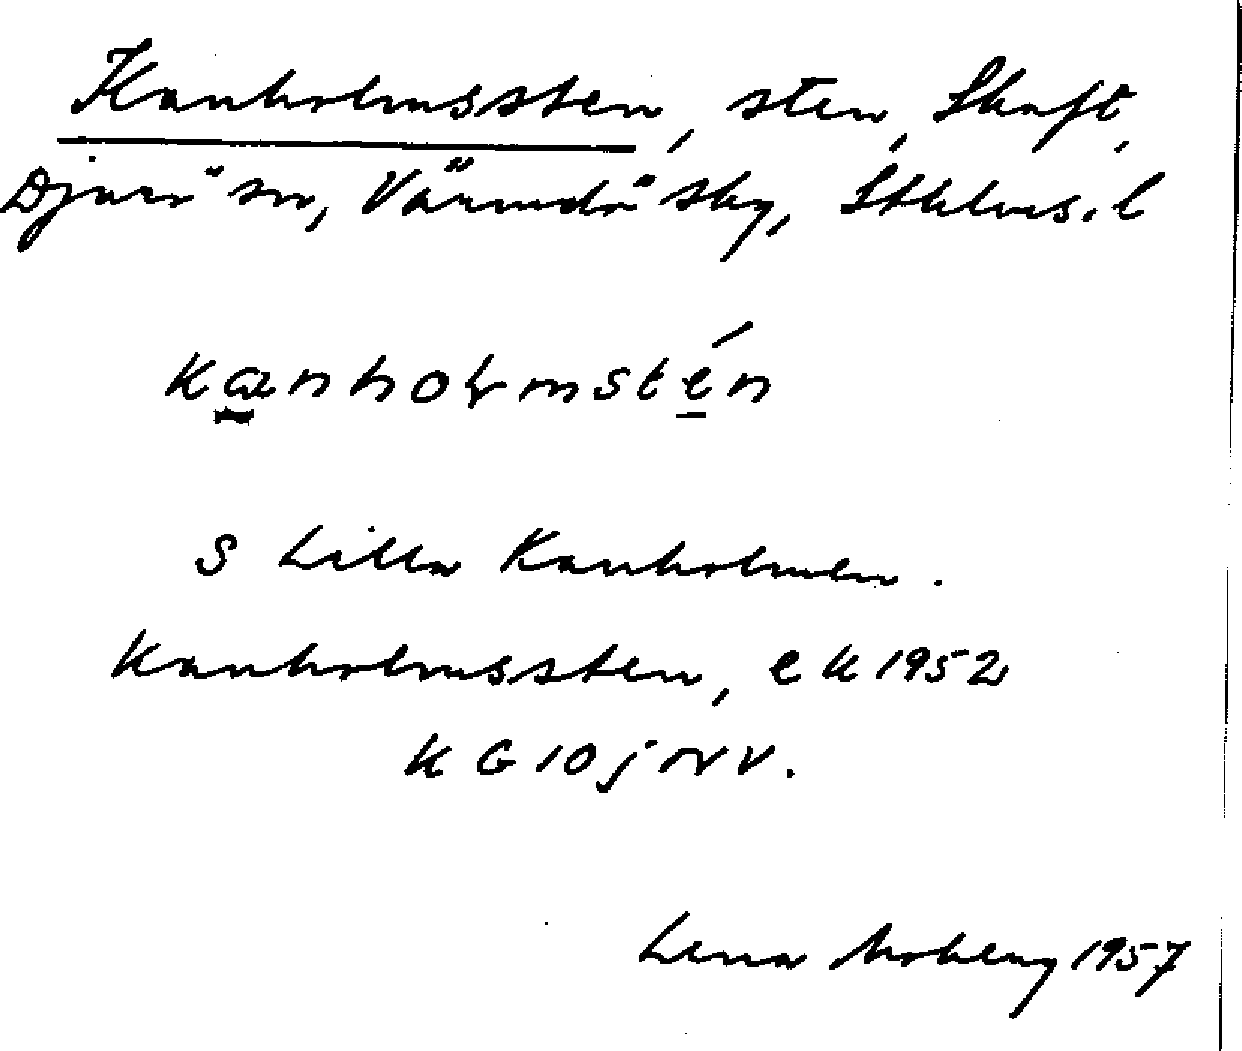 Kanholmssten, sten, Skaft,
Djurö sn, Värmdö sky, Sthlms. l
kanholmstén
S Lilla Kanholmen.
Kanholmssten, e k 1952
K G 10 j NV V.
Lena Moberg 1957